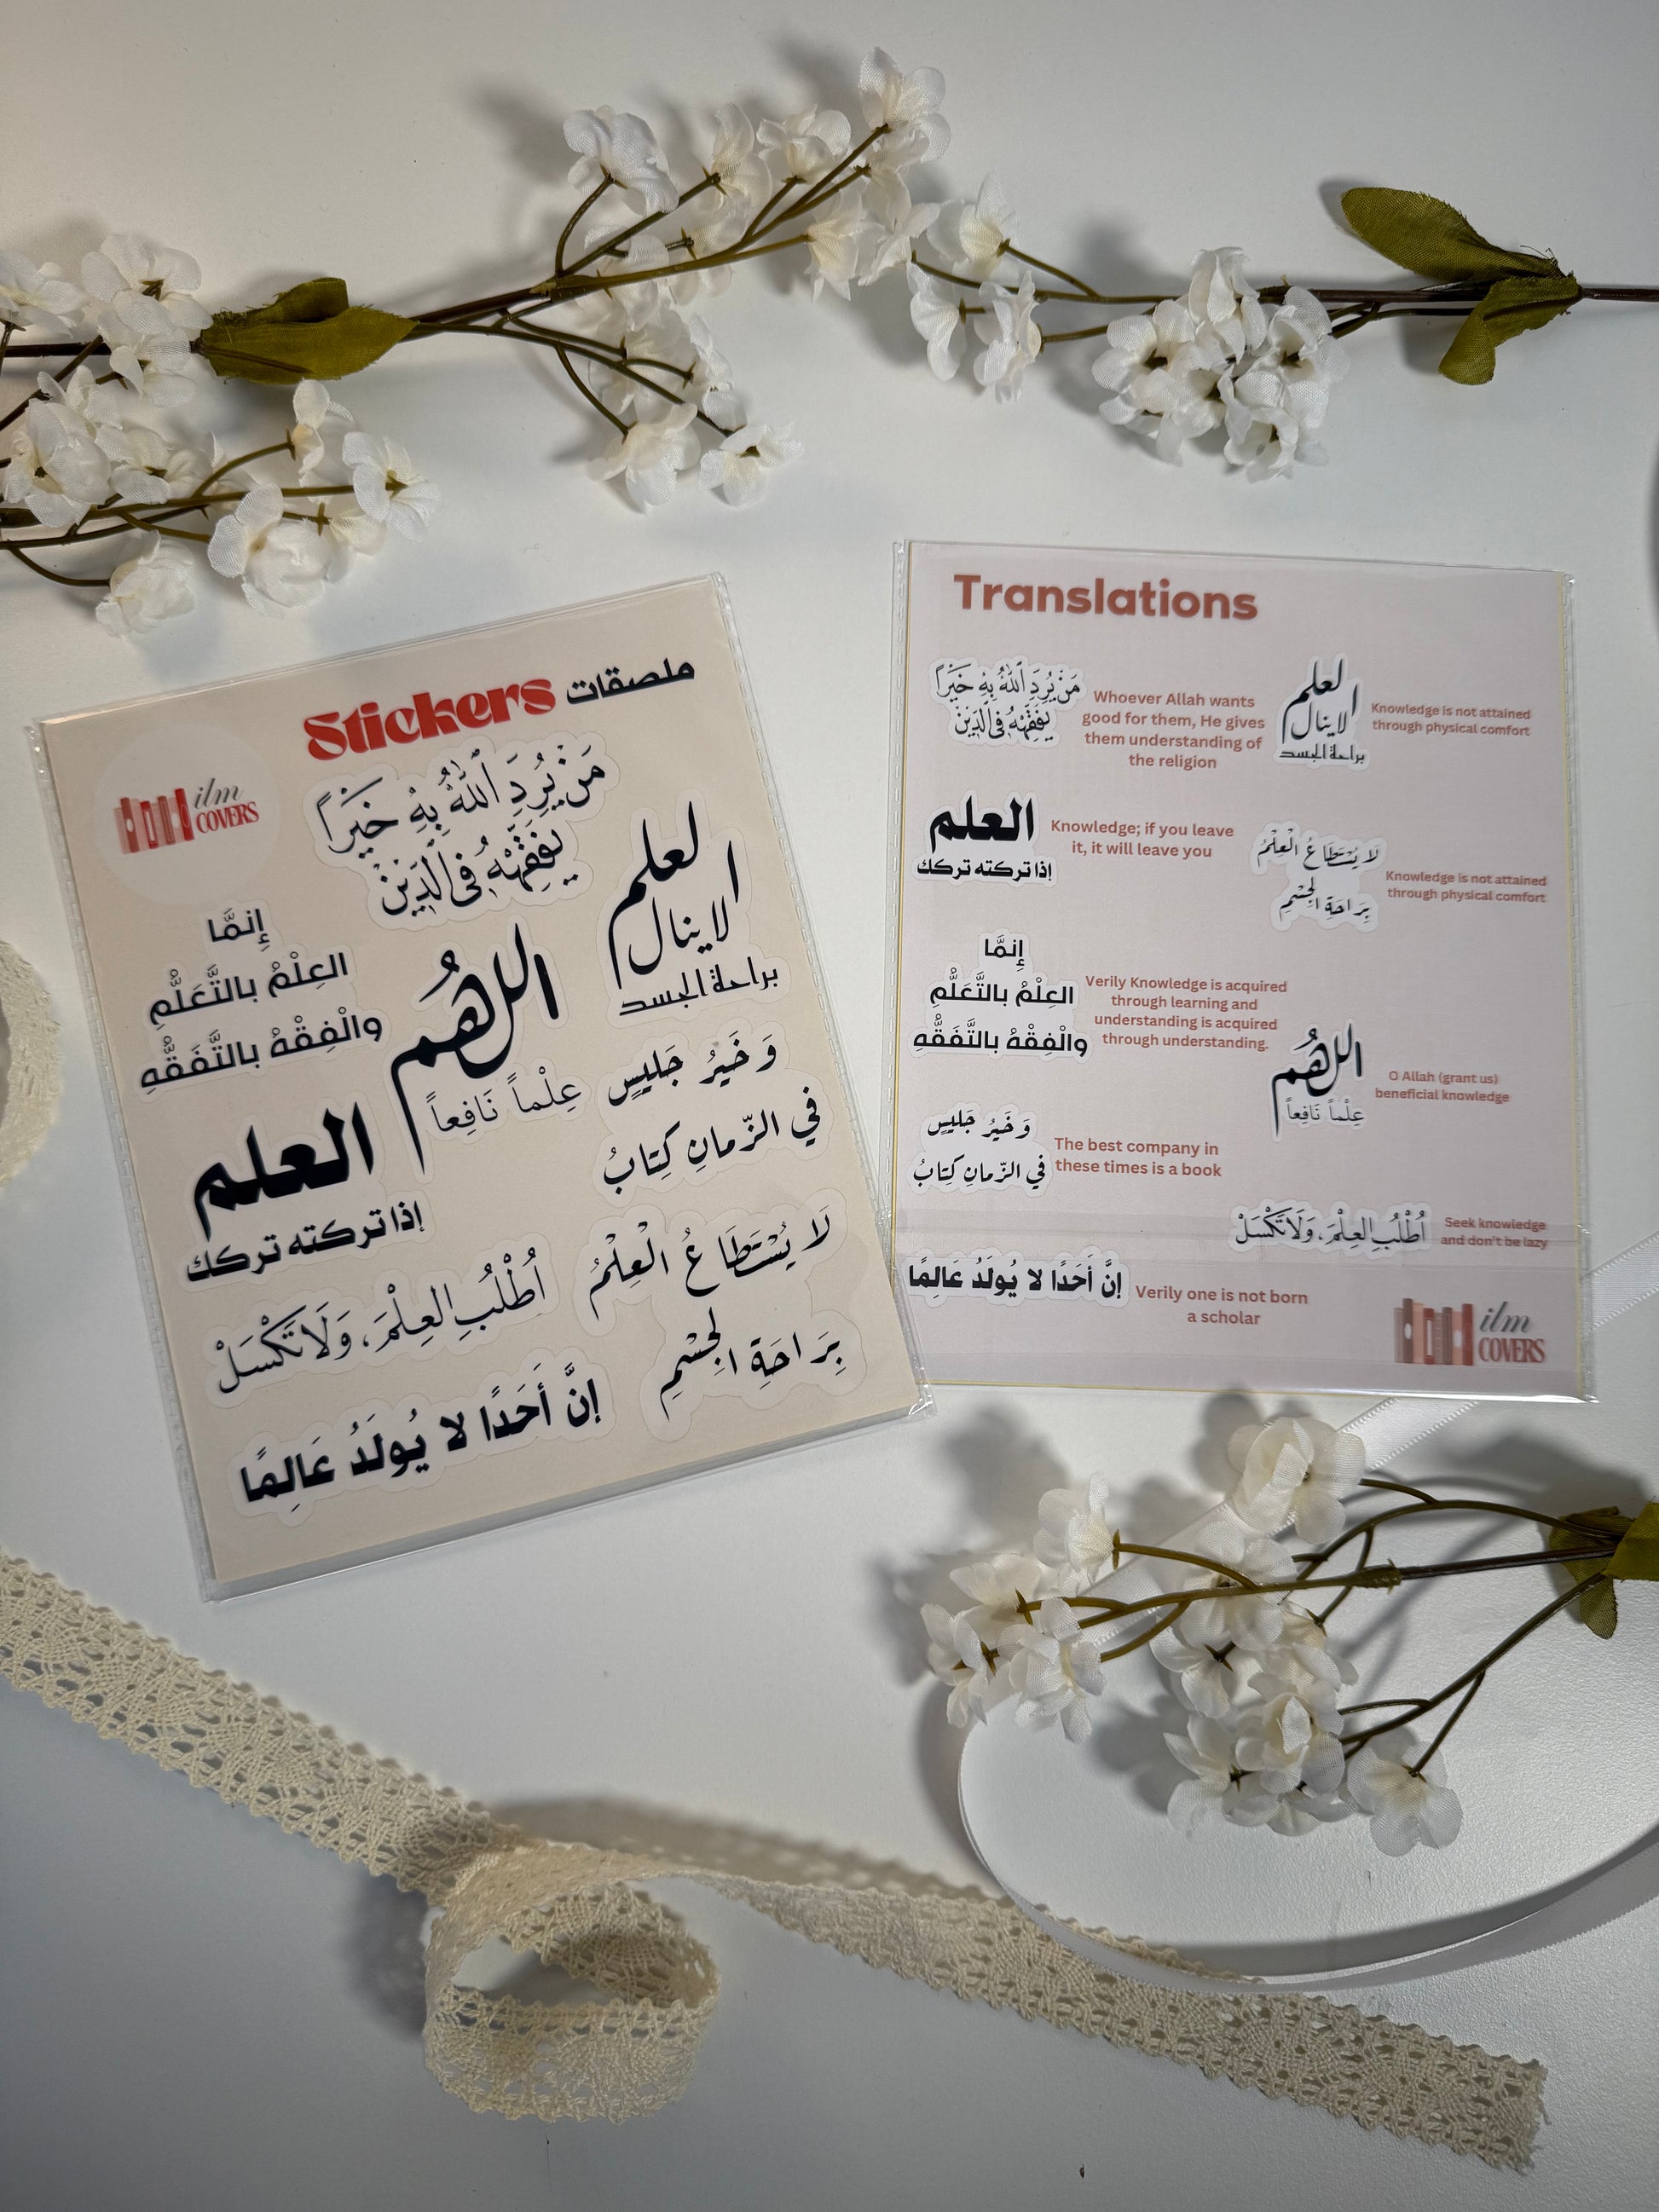 Stickers ملصقات
ilm
COVERS
مَنْ يُرِدِ ٱللَّهُ بِهِ خَيْرًا
يُفَقِّهْهُ فِي الدِّينِ
العلم
لا ينال
براحة الجسد
إِنمَّا
العِلْمُ بالتَّعَلُّمِ
والْفِقْهُ بالتَّفَقُّهِ
اللهُم
عِلْماً نَافِعاً
وَ خَيرُ جَليسٍ
في الزّمانِ كِتابُ
العلم
إذا تركته تركك
لَا يُسْتَطَاعُ الْعِلْمُ
بِرَاحَةِ الْجِسْمِ
اُطْلُبِ العِلْمَ، وَلَا تَكْسَلْ
إنَّ أَحَدًا لا يُولَدُ عَالِمًا
Translations
مَنْ يُرِدِ ٱللَّهُ بِهِ خَيْرًا
يُفَقِّهْهُ فِي الدِّينِ
Whoever Allah wants
good for them, He gives
them understanding of
the religion
العلم
لا ينال
براحة الجسد
Knowledge is not attained
through physical comfort
العلم
إذا تركته تركك
Knowledge; if you leave
it, it will leave you
لَا يُسْتَطَاعُ الْعِلْمُ
بِرَاحَةِ الْجِسْمِ
Knowledge is not attained
through physical comfort
إِنمَّا
العِلْمُ بالتَّعَلُّمِ
والْفِقْهُ بالتَّفَقُّهِ
Verily Knowledge is acquired
through learning and
understanding is acquired
through understanding.
اللهُم
عِلْماً نَافِعاً
O Allah (grant us)
beneficial knowledge
وَ خَيرُ جَليسٍ
في الزّمانِ كِتابُ
The best company in
these times is a book
اُطْلُبِ العِلْمَ، وَلَا تَكْسَلْ
Seek knowledge
and don't be lazy
إنَّ أَحَدًا لا يُولَدُ عَالِمًا
Verily one is not born
a scholar
ilm
COVERS